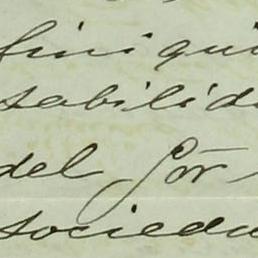 finiqui
sabilida
del Sor
socieda